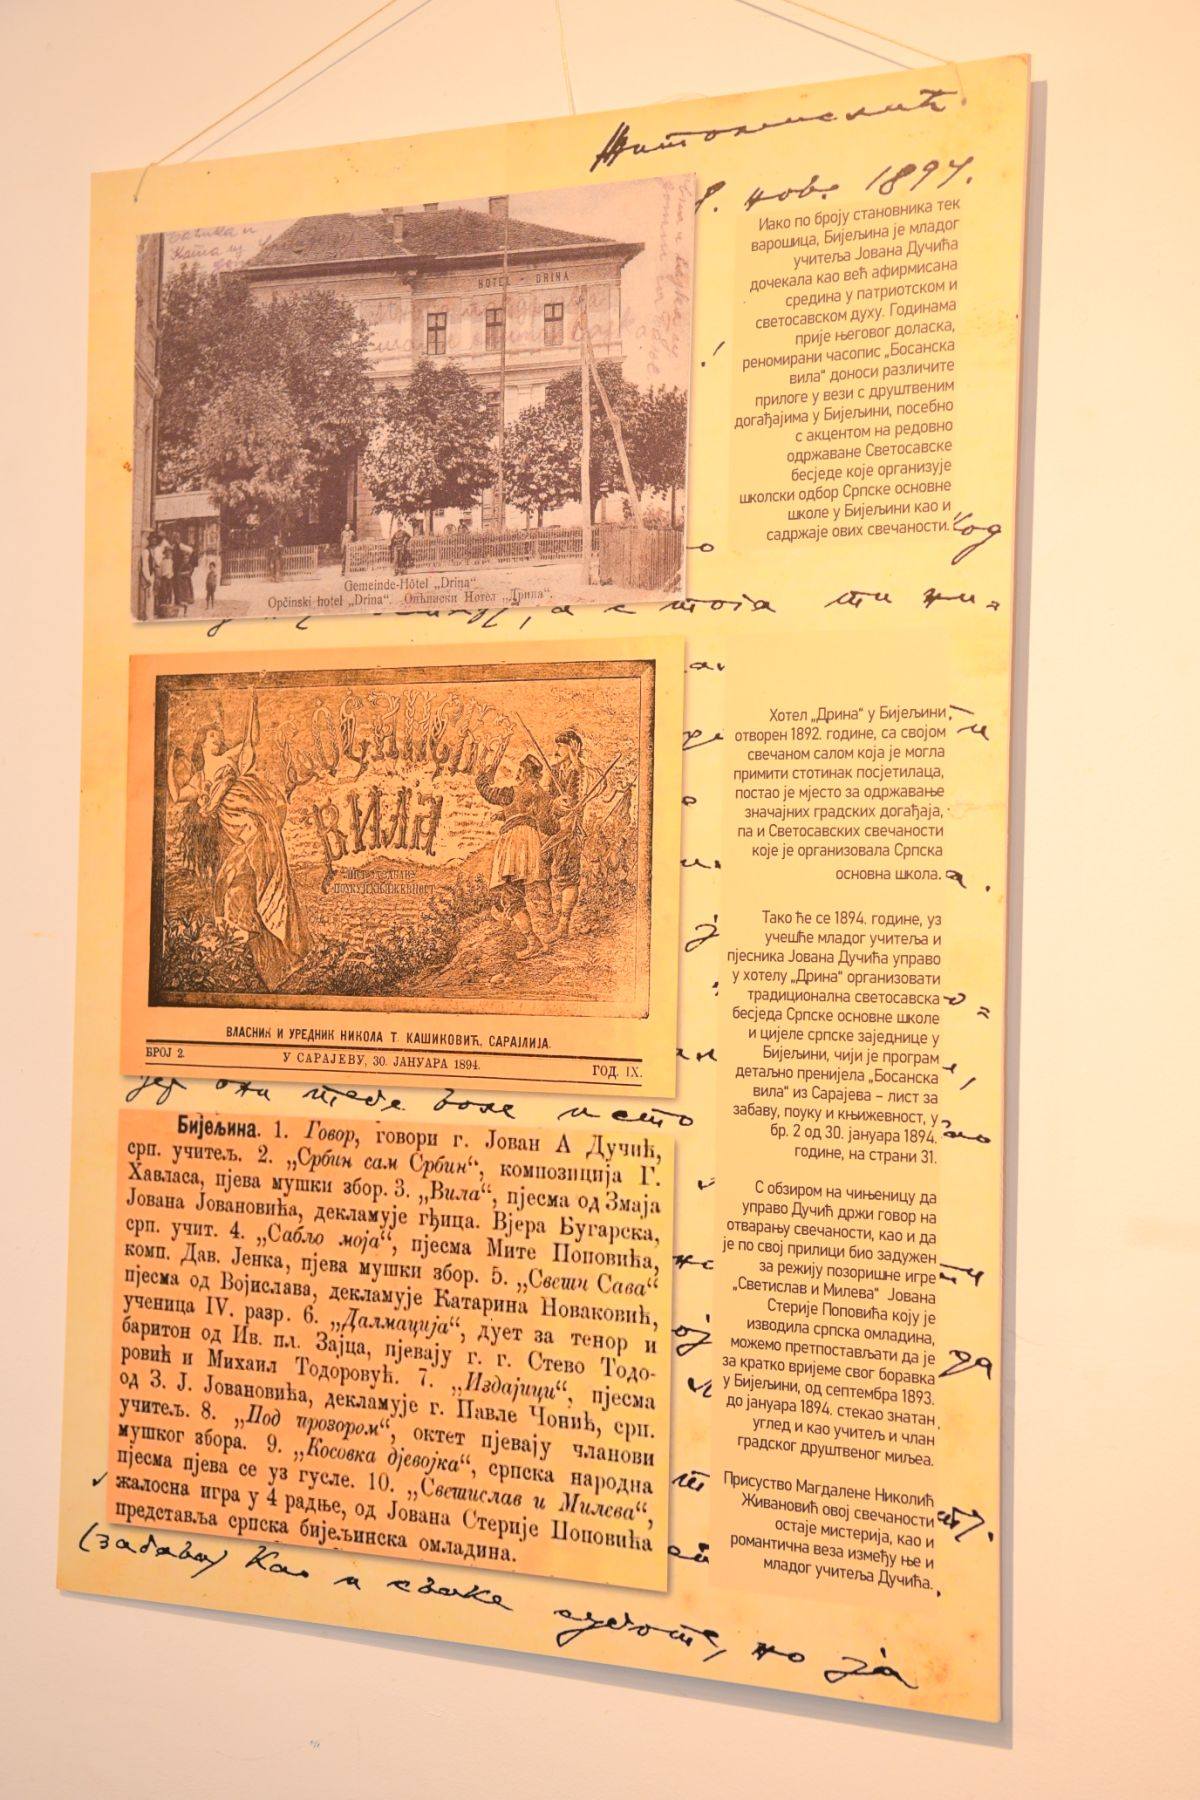 Житомислић.
нов. 1894.
HOTEL - DRINA
Gemeinde-Hôtel „Drina“
Općinski hotel „Drina“. Опћински Хотел „Дрина“.
Иако по броју становника тек
варошица, Бијељина је младог
учитеља Јована Дучића
дочекала као већ афирмисана
средина у патриотском и
светосавском духу. Годинама
прије његовог доласка,
реномирани часопис „Босанска
вила“ доноси различите
прилоге у вези с друштвеним
догађајима у Бијељини, посебно
с акцентом на редовно
одржаване Светосавске
бесједе које организује
школски одбор Српске основне
школе у Бијељини као и
садржаје ових свечаности.
БОСАНСКА
ВИЛА
ЛИСТ ЗА ЗАБАВУ
ПОУКУ И КЊИЖЕВНОСТ
ВЛАСНИК И УРЕДНИК НИКОЛА Т. КАШИКОВИЋ, САРАЈЛИЈА.
БРОЈ 2. У САРАЈЕВУ, 30. ЈАНУАРА 1894. ГОД. IX.
Хотел „Дрина“ у Бијељини,
отворен 1892. године, са својом
свечаном салом која је могла
примити стотинак посјетилаца,
постао је мјесто за одржавање
значајних градских догађаја,
па и Светосавских свечаности
које је организовала Српска
основна школа.
Тако ће се 1894. године, уз
учешће младог учитеља и
пјесника Јована Дучића управо
у хотелу „Дрина“ организовати
традиционална светосавска
бесједа Српске основне школе
и цијеле српске заједнице у
Бијељини, чији је програм
детаљно пренијела „Босанска
вила“ из Сарајева – лист за
забаву, поуку и књижевност, у
бр. 2 од 30. јануара 1894.
године, на страни 31.
С обзиром на чињеницу да
управо Дучић држи говор на
отварању свечаности, као и да
је по свој прилици био задужен
за режију позоришне игре
„Светислав и Милева“ Јована
Стерије Поповића коју је
изводила српска омладина,
можемо претпостављати да је
за кратко вријеме свог боравка
у Бијељини, од септембра 1893.
до јануара 1894. стекао знатан
углед и као учитељ и члан
градског друштвеног миљеа.
Присуство Магдалене Николић
Живановић овој свечаности
остаје мистерија, као и
романтична веза између ње и
младог учитеља Дучића.
јер они тебе воле исто
Бијељина. 1. Говор, говори г. Јован А Дучић,
срп. учитељ. 2. „Србин сам Србин“, композиција Г.
Хавласа, пјева мушки збор. 3. „Вила“, пјесма од Змаја
Јована Јовановића, декламује гђица. Вјера Бугарска,
срп. учит. 4. „Сабљо моја“, пјесма Мите Поповића,
комп. Дав. Јенка, пјева мушки збор. 5. „Свети Сава“
пјесма од Војислава, декламује Катарина Новаковић,
ученица IV. разр. 6. „Далмација“, дует за тенор и
баритон од Ив. пл. Зајца, пјевају г. г. Стево Тодо-
ровић и Михаил Тодоровућ. 7. „Издајици“, пјесма
од З. Ј. Јовановића, декламује г. Павле Чонић, срп.
учитељ. 8. „Под прозором“, октет пјевају чланови
мушког збора. 9. „Косовка дјевојка“, српска народна
пјесма пјева се уз гусле. 10. „Светислав и Милева“,
жалосна игра у 4 радње, од Јована Стерије Поповића
представља српска бијељинска омладина.
(забава) Као и сваке суботе, но ја